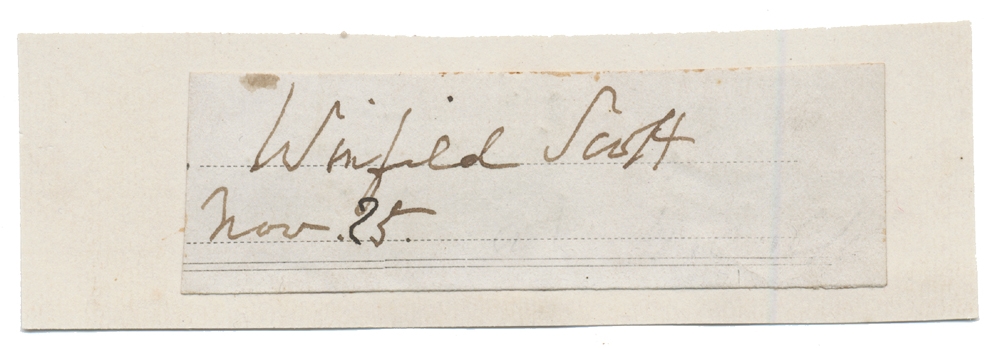 Winfield Scott
Nov. 25.